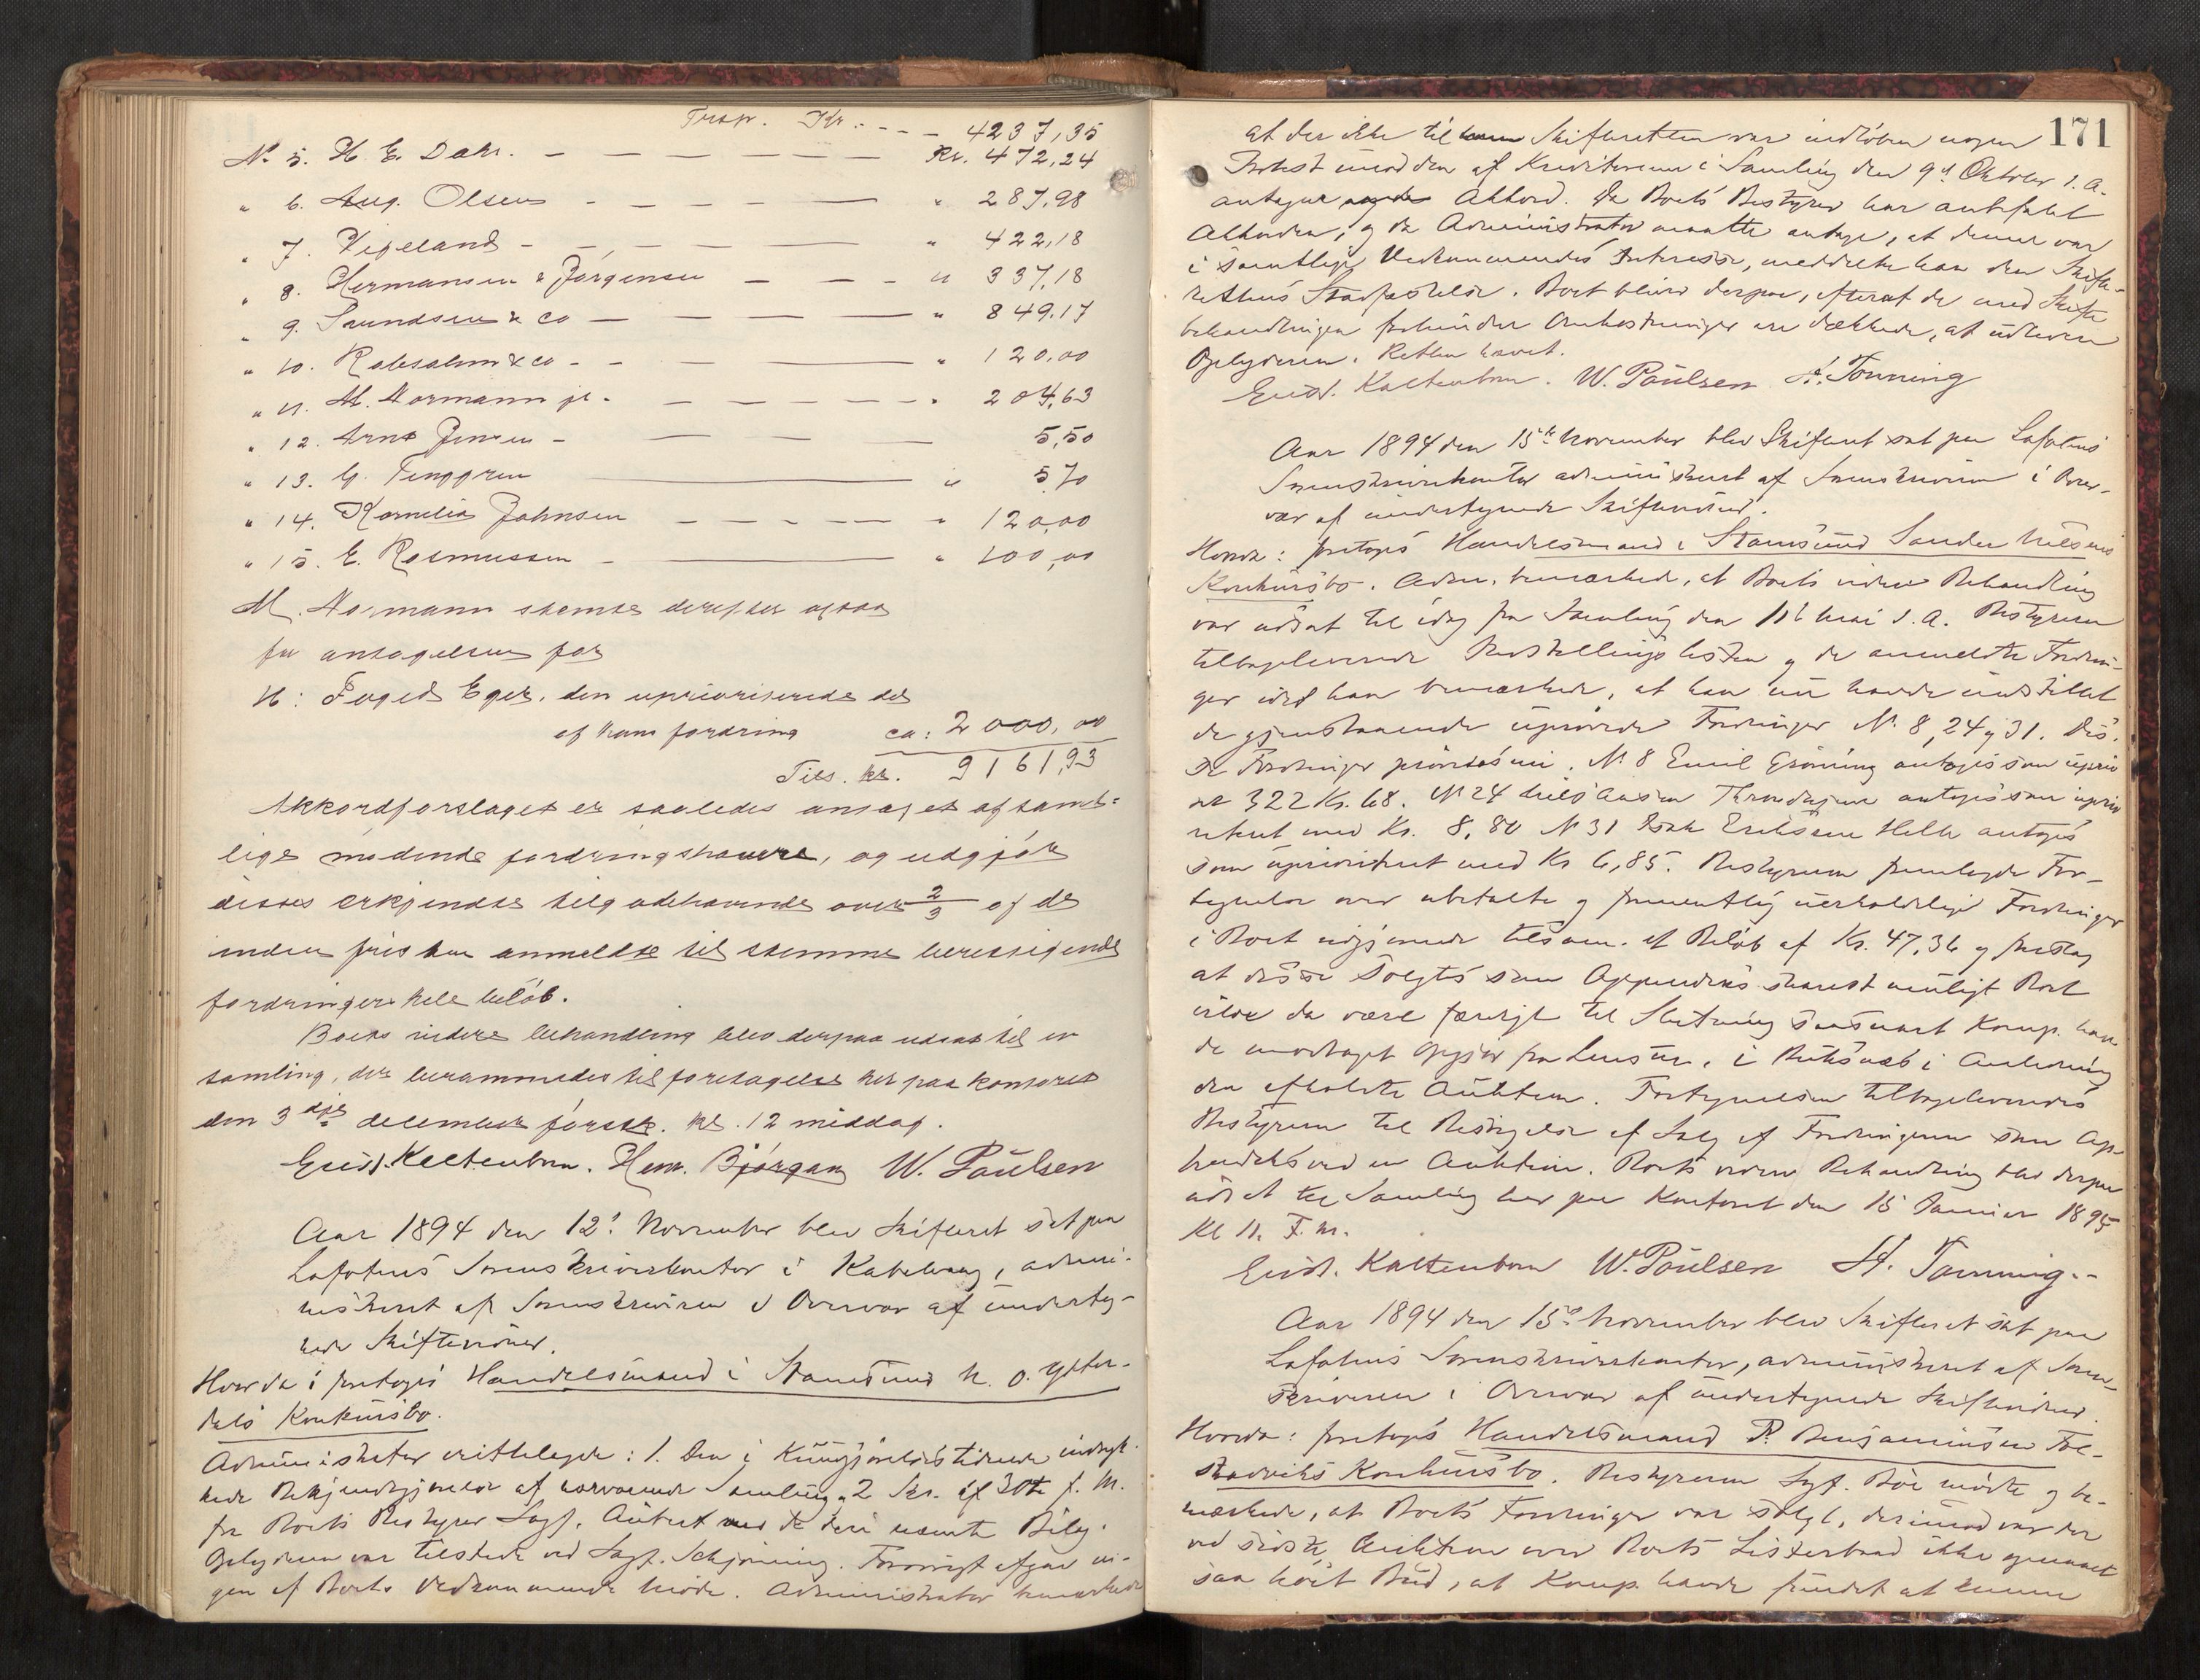 Trsp. Kr. - - - 4237,35
No 5. H. E. Dahr. — — — — — — Kr. 472,24
" 6. Aug. Olsen - - - — — " 287,98
" 7. Vigeland - - - — — " 422,18
" 8. Hermansen & Jörgensen — — - " 337,18
" 9. Svendsen & Co — — — — — " 849.17
" 10. & Co - - — " 120,00
" 11. M. Normann jr. - — — - - - " 204,63
" 12. Arnt Jensen - — — — 5,50
" 13. G. Tenggren — " 5,70
" 14. Kornelia Johnsen - - - — — " 120,00
" 15. E. Rasmussen - — " 100,00
M. Normann stemte derefter ogsaa
for antagelsen for
H: Foged Eger, den uprioriterede del
af hans fordring ca: 2000,00
Tils. kr. 9161,93
Akkordforslaget er saaledes antaget af samt-
lige mødende fordringshavere, og udgjør
disses erkjendte tilgodehavende over 2/3 af de
inden fristen anmeldte til stemme berettigende
fordringers hele beløb.
Boets videre behandling blev derpaa udsat til en
samling, der berammedes til foretagelse her paa kontoret
den 3die december førstk. kl. 12 middag.
Eduv. Kaltenborn. Hem. Bjørgan W. Paulsen
Aar 1894 den 12' November blev Skifteret sat paa
Lofotens Sorenskriverkontor i Kabelvaag, admini-
nistreret af Sorenskriveren i Overvær af underteg-
nede Skiftevidner.
Hvorda: foretoges Handelsmand i Stamsund N. O. Ytter-
dals Konkursbo.
Administrator fremlagde: 1. Den i Kundgjørelsestidende indryk-
kede Bekjendtgjørelse af nærværende Samling, 2 Skr. af 30te f. M.
fra Boets Bestyrer Sagf. Aubert med de deri nævnte Bilag.
Opbyderen var tilstede ved Sagf. Schjønning. Forøvrigt afgav in-
gen af Boets Vedkommende Møde. Administrator bemærkede
171
at der ikke til Skifteretten var indløben nogen
Protest imod den af Kreditorerne i Samling den 9d Oktober d. A.
antagne Akkord. Da Boets Bestyrer har anbefalet
Akkorden, og da Administrator maatte antage, at denne var
i samtlige Vedkommendes Interesse, meddelte han den Skifte-
rettens Stadfæstelse. Boet bliver derpaa, efterat de med Skifte
behandlingen forbundne Omkostninger ere dækkede, at udlevere
Opbyderen. Retten hævet.
Eduv. Kaltenborn. W. Paulsen H. Tønning
Aar 1894 den 15de November blev Skifteret sat paa Lofotens
Sorenskriverkontor administreret af Sorenskriveren i Over-
vær af undertegnede Skiftevidner.
Hvorda: foretoges Handelsmand i Stamsund Sander Nilsens
Konkursbo. Adm. bemærkede, at Boets videre Behandling
var udsat til idag fra Samling den 11te Mai d. A. Bestyreren
tilbageleverede Indstillingslisten og de anmeldte Fordrin-
ger idet han bemærkede, at han nu havde indstillet
de gjenstaaende uprøvede Fordringer No. 8, 24 og 31. Dis-
se Fordringer prøvedes nu. No 8 Emil Grøning antoges som uprio
ret 322 Kr. 68. No 24 Nils Larsen antoges som uprio
riteret med Kr. 8,80 No 31 Isak Eriksen Helle antoges
som uprioriteret med Kr 6,85. Bestyreren fremlagde For-
tegnelse over ubetalte og formentlig uerholdelige Fordringer
i Boet udgjørende tilsam. et Beløb af Kr. 47,36 og foreslog
at disse solgtes som Appendiks snarest muligt Boet
vilde da være færdigt til Slutning saasnart Komp. hav-
de modtaget Opgjør fra Lensm. i Buksnæs i Anledning
den afholdte Auktion. Fortegnelsen tilbageleveredes
Bestyreren til Besørgelse af Salg af Fordringerne som Ap-
pendiks ved en Auktion. Boets videre Behandling blev derpaa
udsat til Samling her paa Kontoret den 15 Januar 1895
Kl 11. F. m.
Eduv. Kaltenborn W. Paulsen H. Tønning.
Aar 1894 den 15de November blev Skifteret sat paa
Lofotens Sorenskriverkontor, administreret af Soren-
skriveren i Overvær af undertegnede Skiftevidner.
Hvorda: foretoges Handelsmand P. Benjaminsen Tel-
Konkursbo. Bestyreren Sagf. Bøe mødte og be-
mærkede, at Boets Fordringer var solgt, derimod var der
ved sidste Auktion over Boets Listerbaad ikke opnaaet
saa høit Bud, at Komp. havde fundet at kunne